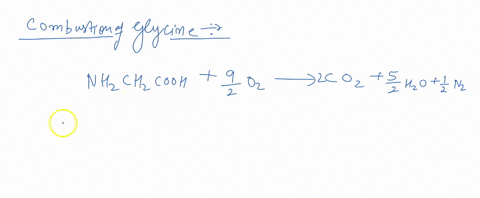 Combustion of glycine ÷
NH₂CH₂COOH + 9/2 O₂ ⟶ 2CO₂ + 5/2 H₂O + 1/2 N₂